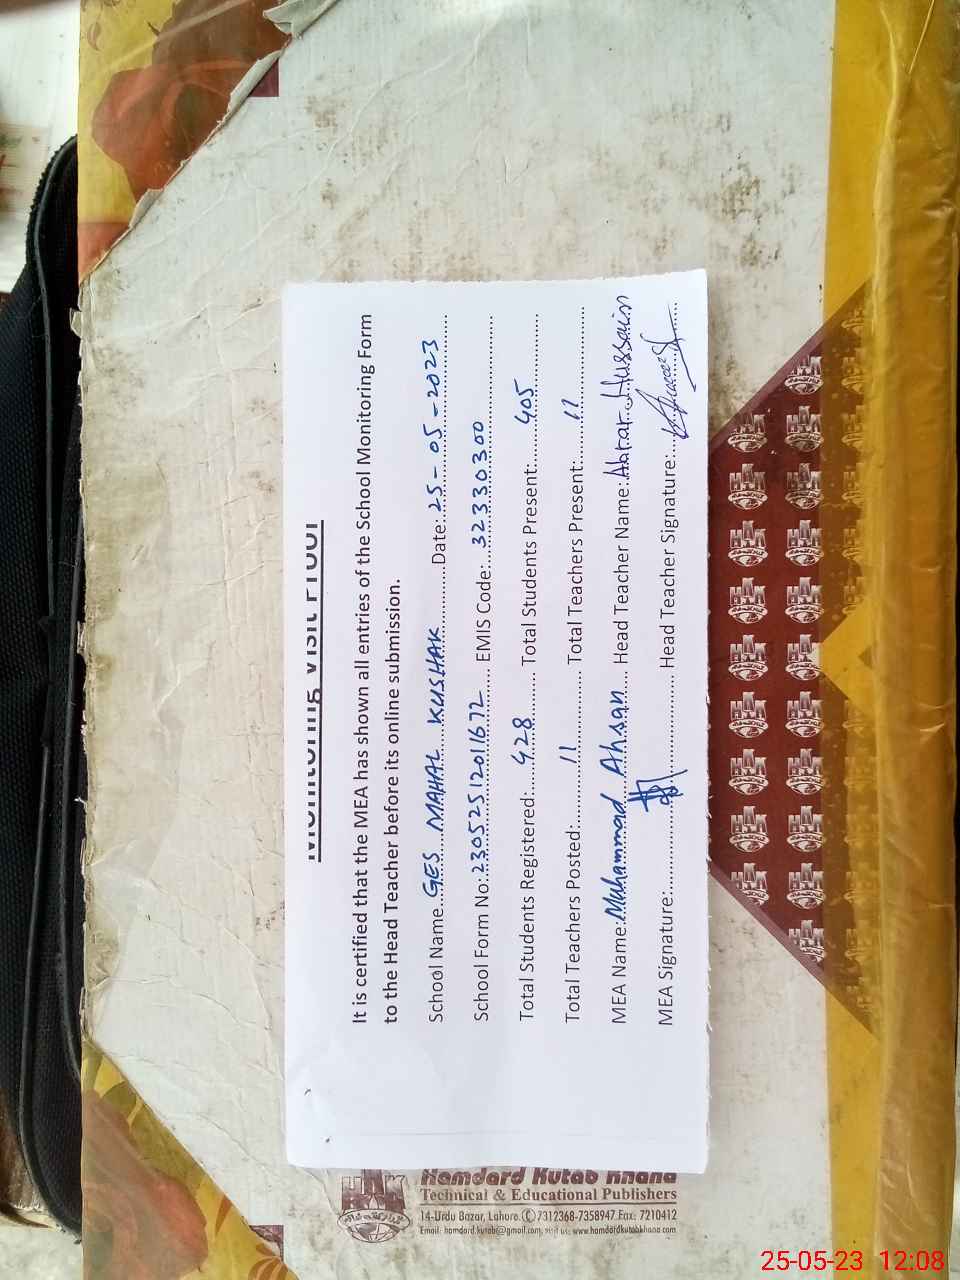 Monitoring Visit Proof
It is certified that the MEA has shown all entries of the School Monitoring Form
to the Head Teacher before its online submission.
School Name...GES MAHAL KUSHAK............Date:..25-05-2023......
School Form No:.23052512011672...... EMIS Code:...32330300..................
Total Students Registered:....428........ Total Students Present:......405............
Total Teachers Posted:............11............. Total Teachers Present:.......11...............
MEA Name:Muhammad Ahsan.... Head Teacher Name:.Akhtar Hussain
MEA Signature:.................................... Head Teacher Signature:........................
HKK
Hamdard Kutab Khana
Technical & Educational Publishers
14-Urdu Bazar, Lahore. (C) 7312368-7358947. Fax: 7210412
Email: hamdard.kutab@gmail.com, visit us: www.hamdardkutabkhana.com
25-05-23 12:08